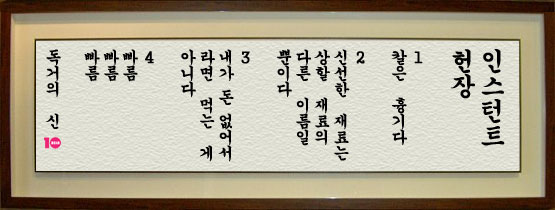 인스턴트
헌장
1
칼은 흉기다
2
신선한 재료는
상할 재료의
다른 이름일
뿐이다
3
내가 돈 없어서
라면 먹는 게
아니다
4
빠름
빠름
빠름
독거의 신
10